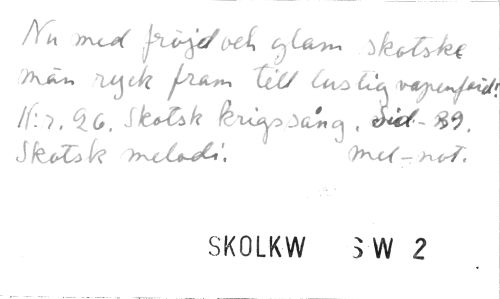 Nu med fröjd och glam skotske
män ryck fram till lustig vapenfärd!
N:r. 26. Skotsk krigssång. Sid - 39.
Skotsk melodi. mel-not.
SKOLKW SW 2